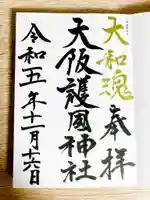 大和魂 奉拝
大阪護國神社
令和五年十一月十六日